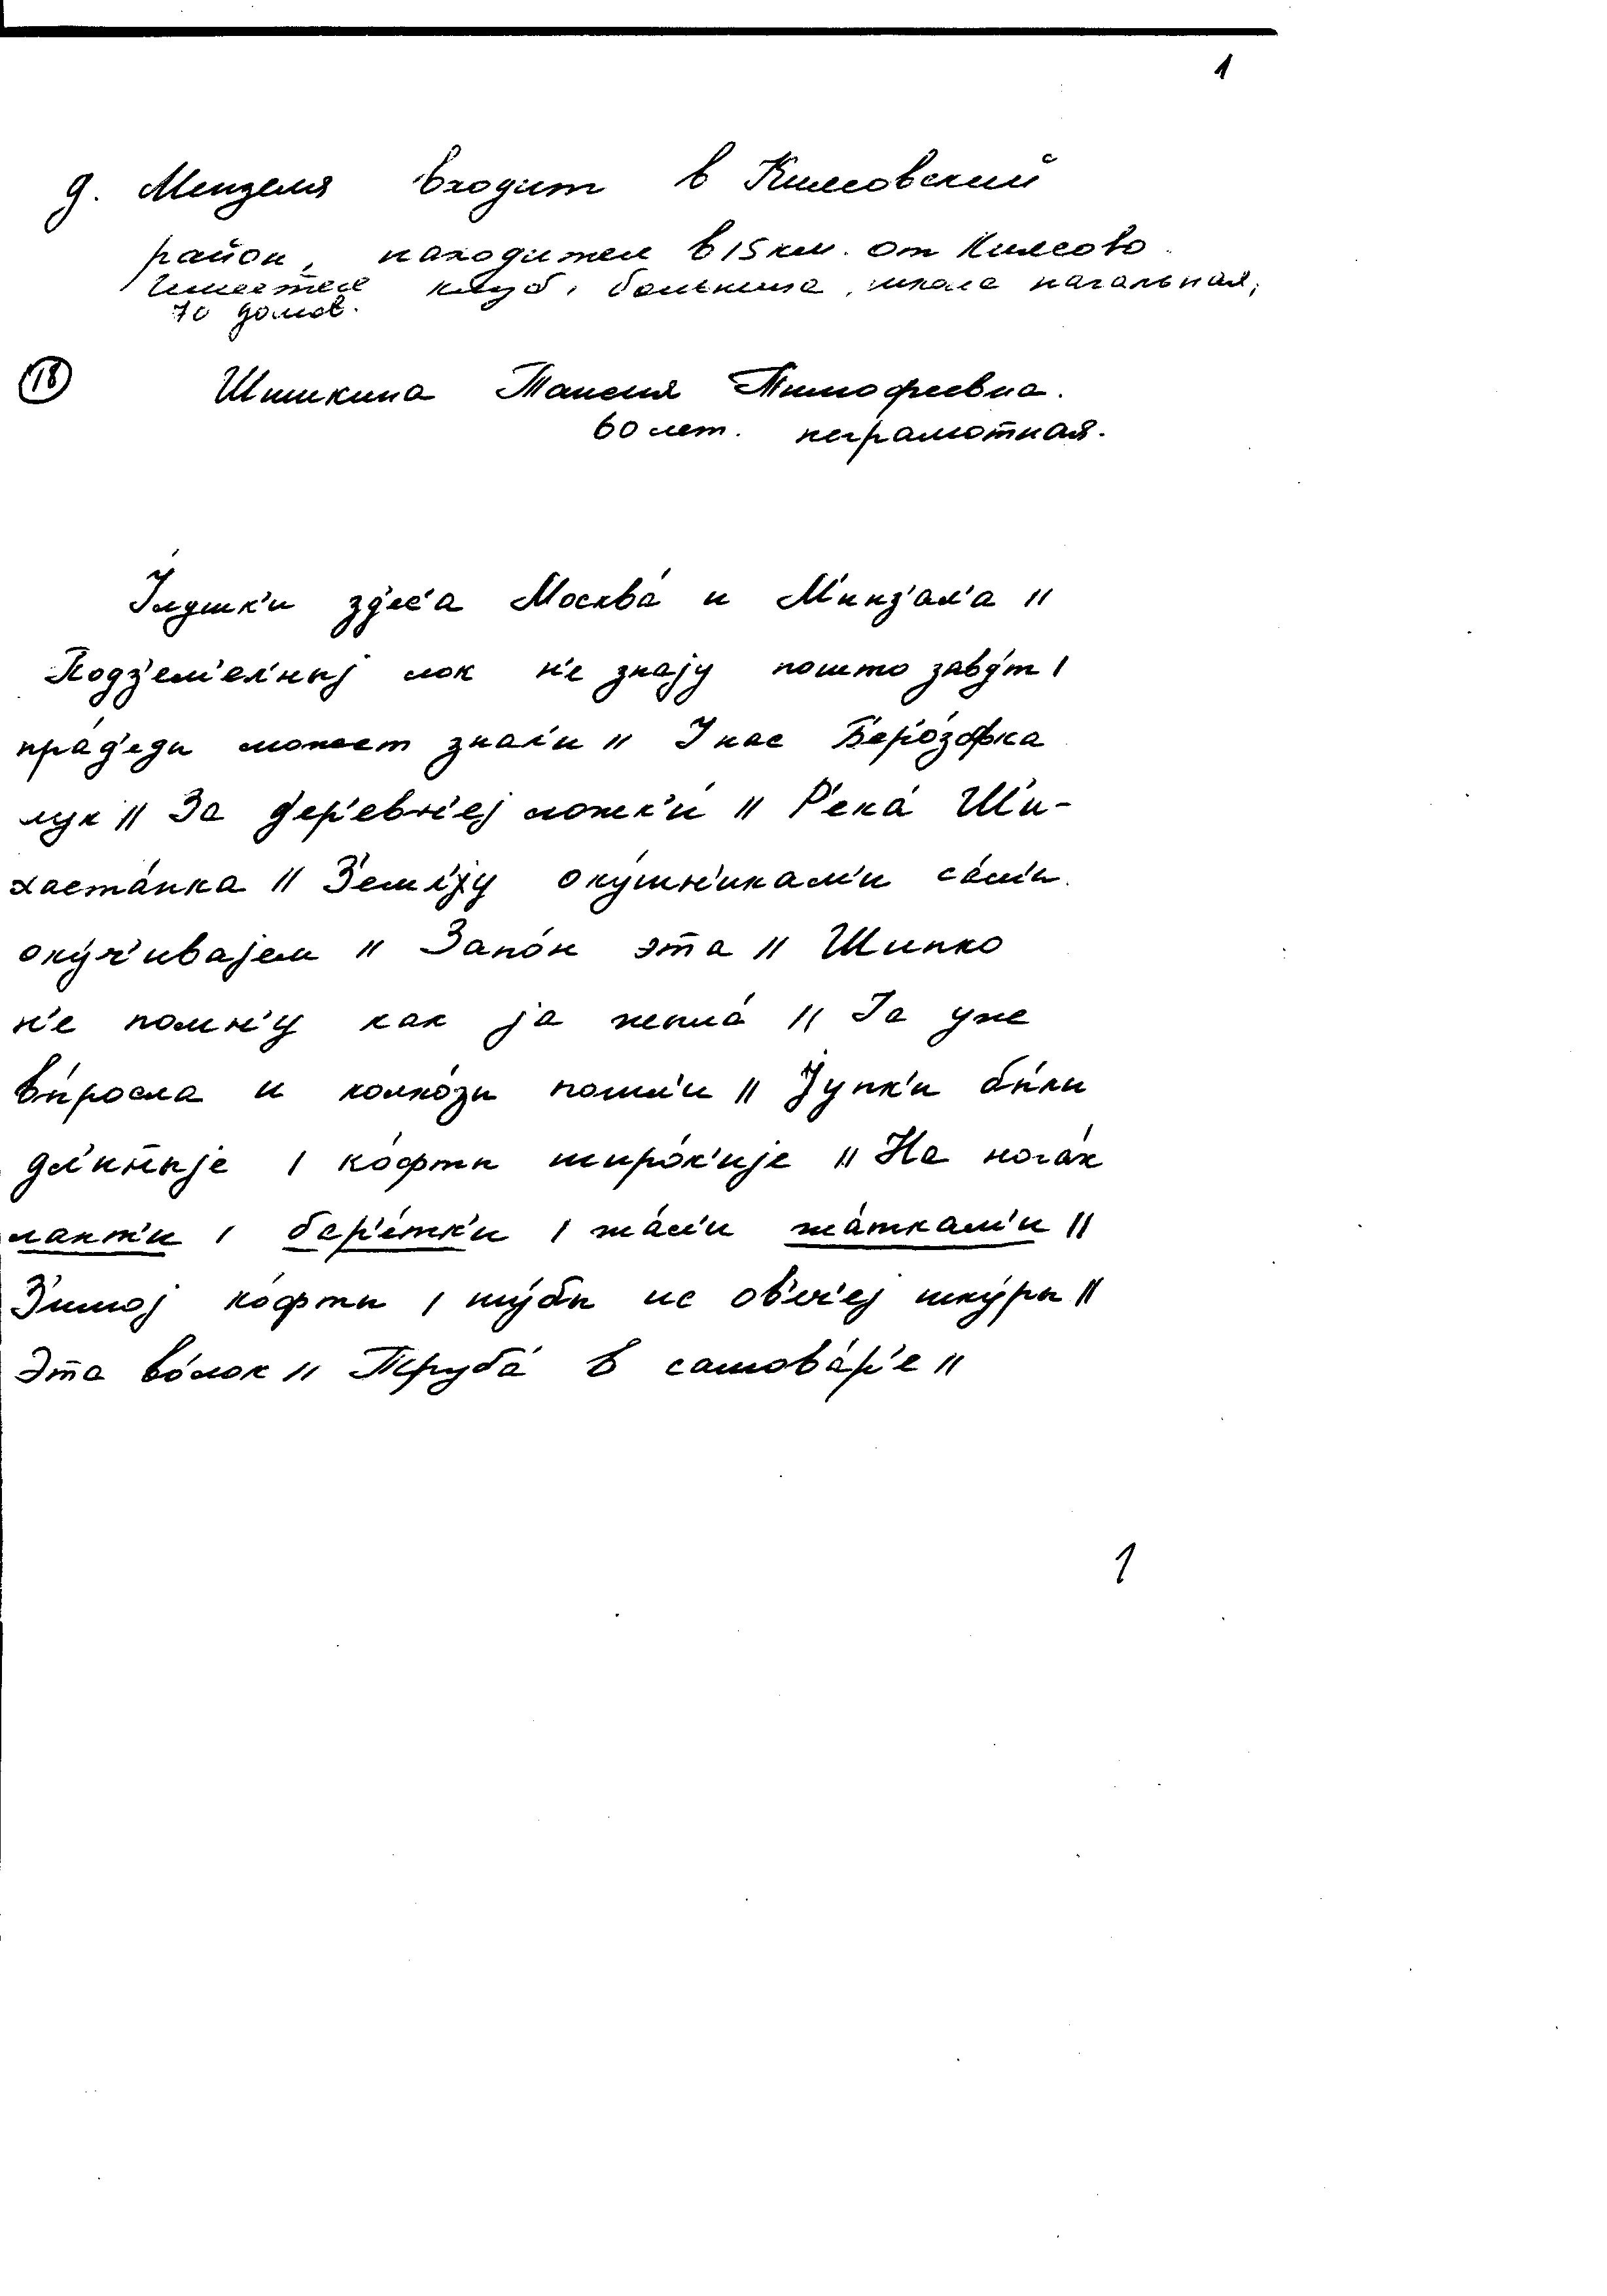 1
д. Мензеля входит в Килеовский
район, находится в 15 км. от Килеово.
Имеется клуб, больница, школа начальная,
70 домов.
18 Шишкина Таисия Тимофеевна.
60 лет. неграмотная.
здес'а Москва́ и М'инз'ал'а //
Подз'ем'ел'ныј лок н'е знају пошто заву́т /
пра́д'еды может знал'и // У нас Б'еро́зофка
лук // За д'ер'евн'еј ложк'и́ // Р'ека́ Ш'и-
хаста́нка // З'емл'у оку́шн'икам'и са́м'и
оку́ч'ивајем // Запо́н эта // Шипко
н'е помн'у как ја жыла́ // Ја уже
вы́росла и колхо́зы пошл'и // Јупк'и бы́ли
дл'ин̄ыје / ко́фты широ́к'ије // На нога́х
лапт'и / бер'е́тк'и / жа́л'и жа́ткам'и //
З'имој ко́фты / шу́бы ис ов'еч'еј шку́ры //
Эта во́лок // Труба́ в самова́р'е //
1